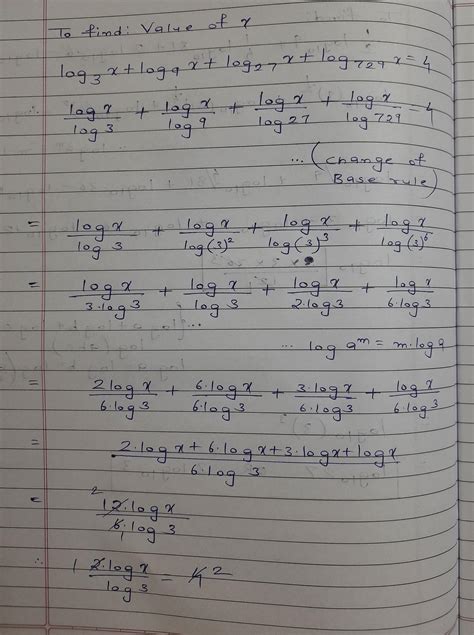 To find: Value of x
log₃x + log₉x + log₂₇x + log₇₂₉x = 4
∴ log x / log 3 + log x / log 9 + log x / log 27 + log x / log 729 = 4
... (change of Base rule)
= log x / log 3 + log x / log(3)² + log x / log(3)³ + log x / log(3)⁶
= log x / 3·log 3 + log x / log 3 + log x / 2·log 3 + log x / 6·log 3
... log aᵐ = m·log a
= 2 log x / 6·log 3 + 6·log x / 6·log 3 + 3·log x / 6·log 3 + log x / 6·log 3
= 2·log x + 6·log x + 3·log x + log x / 6·log 3
= 2 12·log x / 6 1·log 3
∴ 1 2·log x / log 3 = 4 2